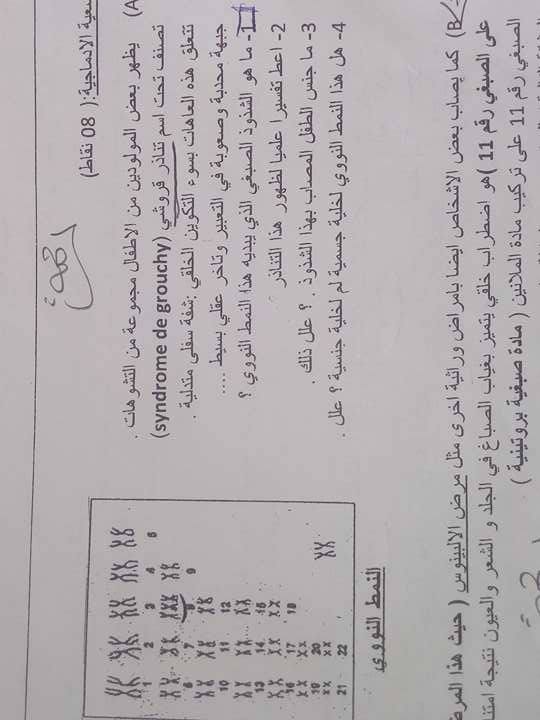 الادماجية:( 08 نقاط)
A) يظهر بعض المولودين من الاطفال مجموعة من التشوهات .
تصنف تحت اسم تناذر قروشي (syndrome de grouchy)
تتعلق هذه العاهات بسوء التكوين الخلقي :شفة سفلى متدلية .
جبهة محدبة وصعوبة في التعبير وتاخر عقلي بسيط ....
1- ما هو الشذوذ الصبغي الذي يبديه هذا النمط النووي ؟
2- اعط تفسيرا علميا لظهور هذا التناذر
3- ما جنس الطفل المصاب بهذا الشذوذ . ؟ علل ذلك .
4- هل هذا النمط النووي لخلية جسمية لم لخلية جنسية ؟ علل .
1 2 3 4 5
6 7 8 9
10 11 12
13 14 15
16 17 18
19 20
21 22
النمط النووي
B) كما يصاب بعض الاشخاص ايضا بامراض وراثية اخرى مثل مرض الالبينوس ( حيث هذا
على الصبغي رقم 11 )هو اضطراب خلقي يتميز بغياب الصباغ في الجلد و الشعر والعيون نتيجة
الصبغي رقم 11 على تركيب مادة الملانين ( مادة صبغية بروتينية )